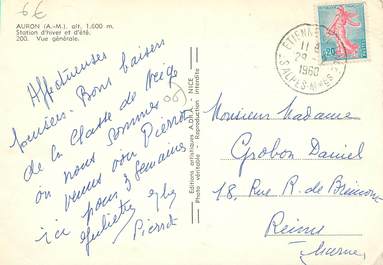 6€
AURON (A.-M.). alt. 1.600 m.
Station d'hiver et d'été.
200. Vue générale.
Affectueuses
pensées. Bons baisers
de la classe de neige
où nous sommes
venus voir Pierrot
ici pour 3 semaines
Juliette
Pierrot
Editions artistiques A.D.R.A - NICE
Photo véritable - Reproduction interdite
ETIENNE
11
29
1960
ALPES-M
0,20
Monsieur Madame
Grobon Daniel
18, Rue R. de Brimont
Reims
Marne